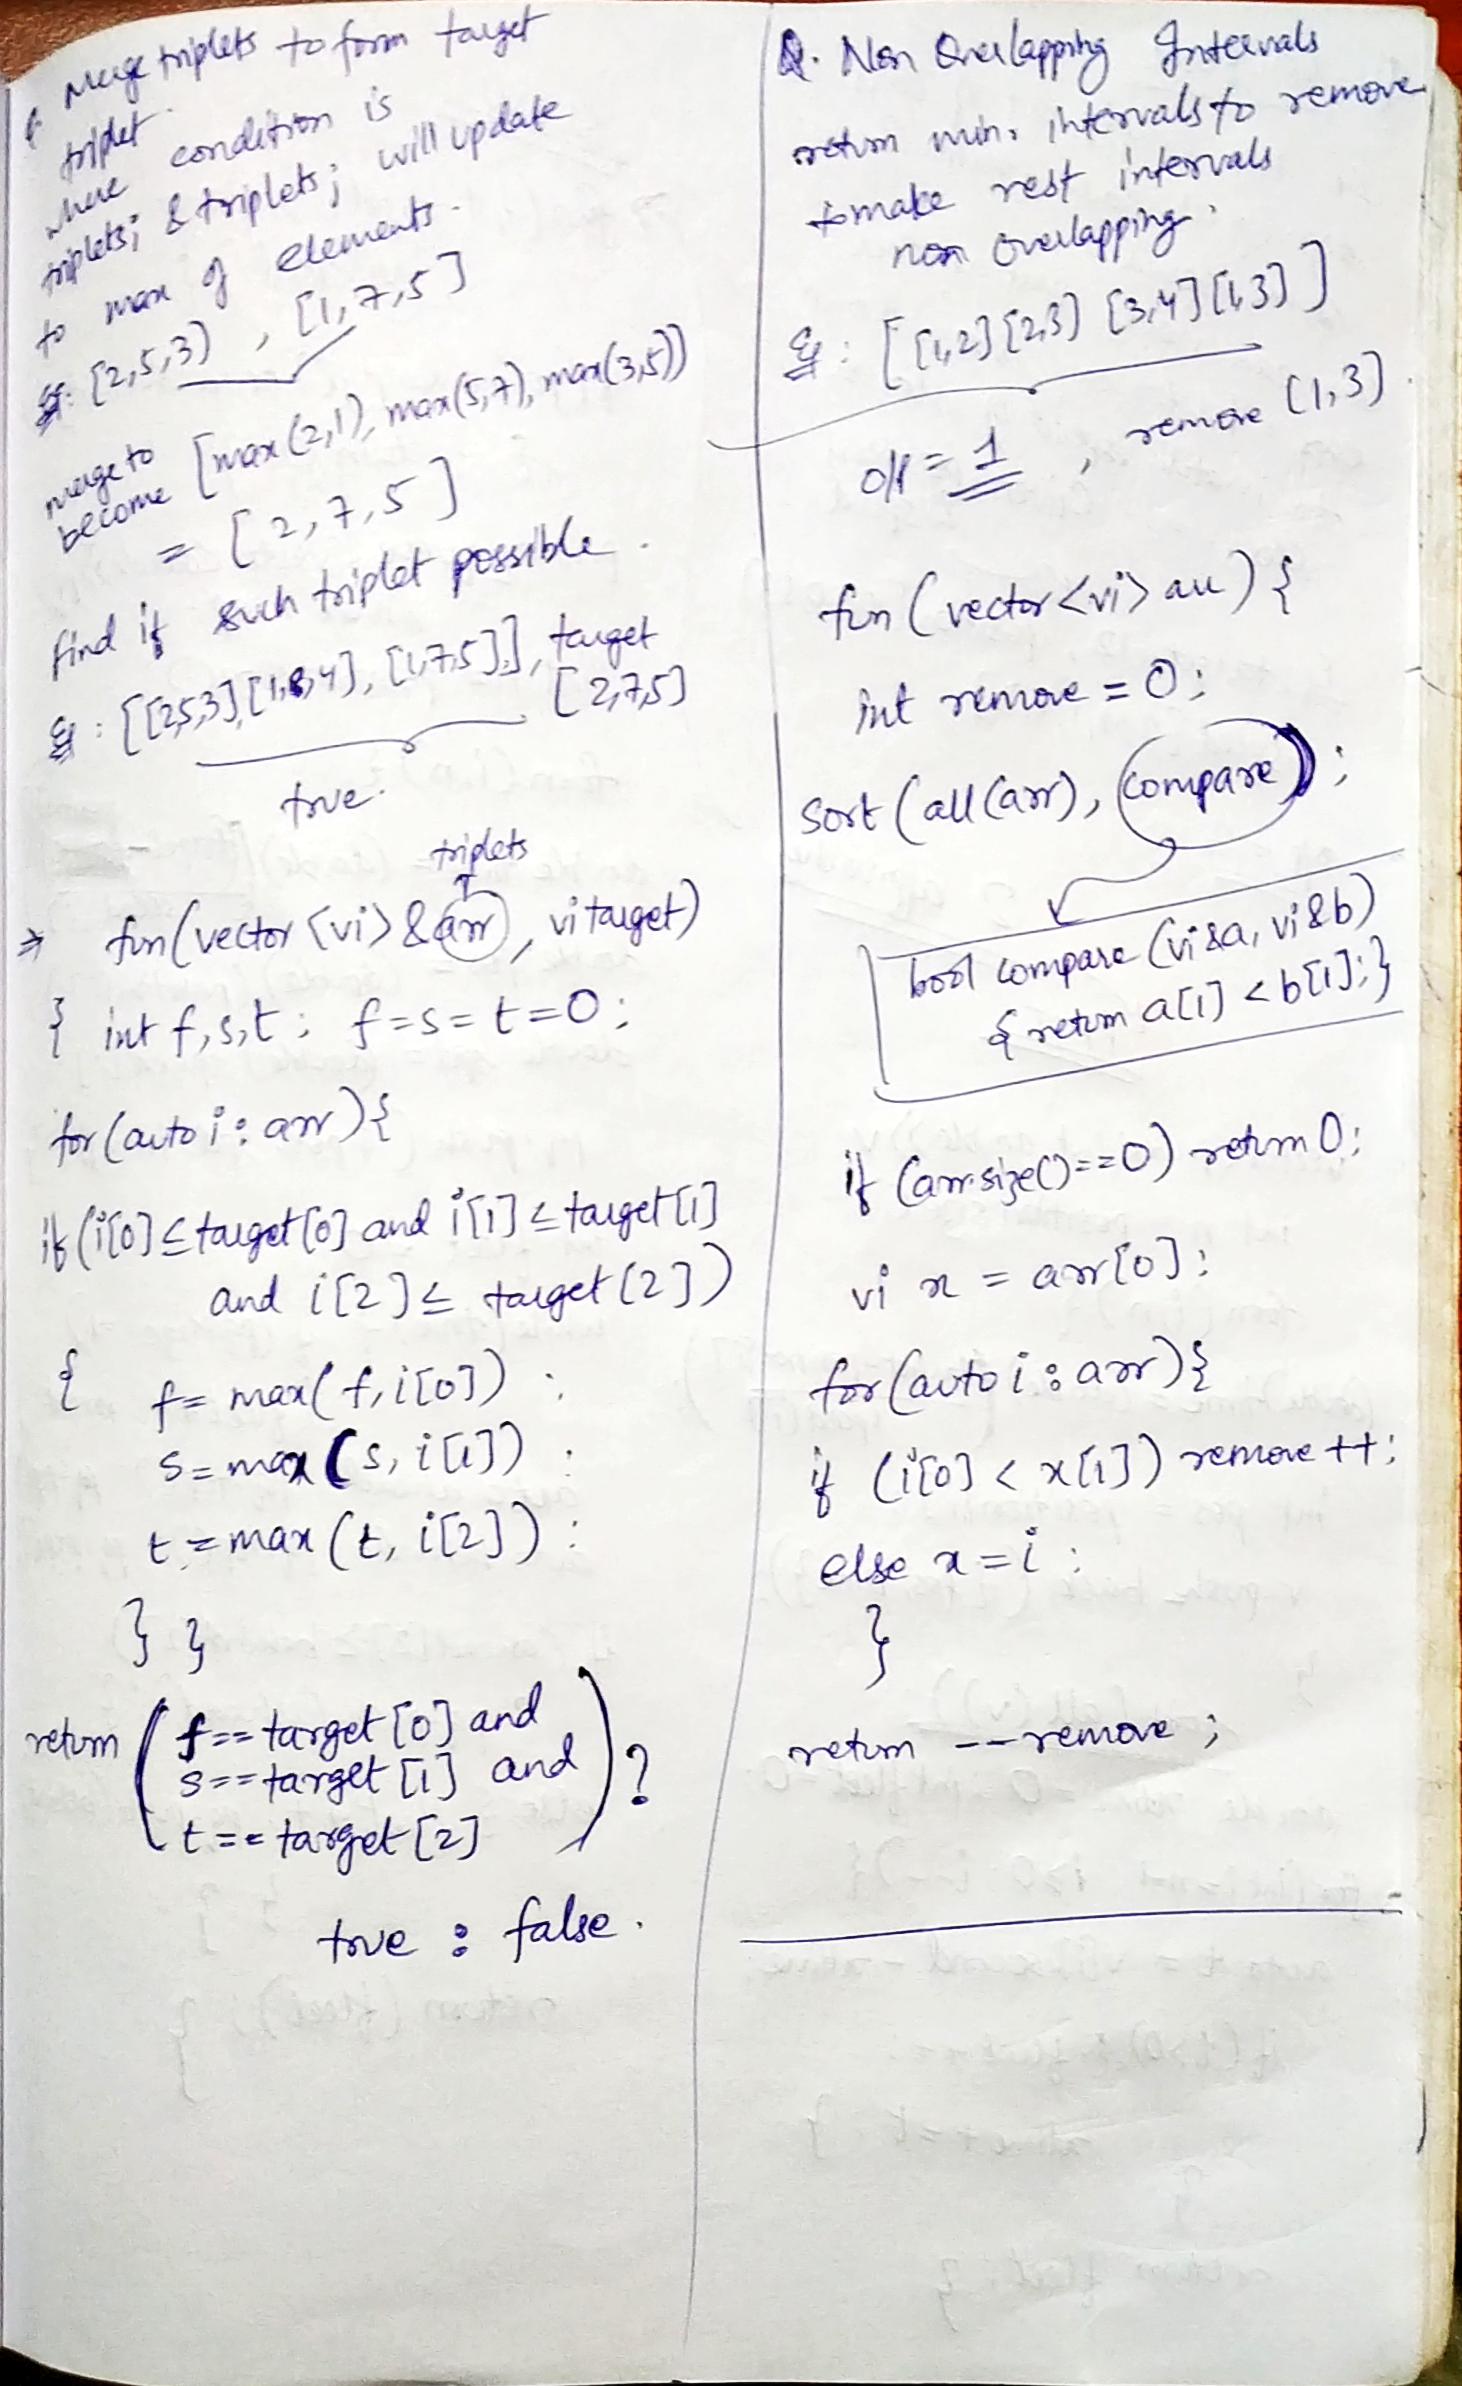 Q. Merge triplets to form target
triplet
where condition is
triplets i & triplets j will update
to max of elements.
Eg: [2,5,3) , [1,7,5]
merge to
become [max(2,1), max(5,7), max(3,5))
= [2,7,5]
find if such triplet possible.
Eg: [[2,5,3],[1,8,4], [1,7,5]], target
[2,7,5]
true.
triplets
⇒ fun(vector<vi>&arr, vi target)
{ int f,s,t; f=s=t=0;
for(auto i: arr){
if(i[0]≤target[0] and i[1]≤target[1]
and i[2]≤ target[2])
{ f= max(f,i[0]);
s=max(s,i[1]);
t=max(t,i[2]);
} }
return (f==target[0] and
s==target[1] and
t==target[2] ) ?
true : false.
Q. Non Overlapping Intervals
return min. intervals to remove
to make rest intervals
non overlapping.
Eg: [[1,2][2,3) [3,4][1,3)]
o/p = 1 , remove (1,3).
fun(vector<vi> arr){
int remove = 0;
sort(all(arr), compare);
bool compare(vi&a, vi&b)
{return a[1]<b[1];}
if (arr.size()==0) return 0;
vi x = arr[0];
for(auto i: arr){
if (i[0] < x[1]) remove++;
else x=i;
}
return --remove;